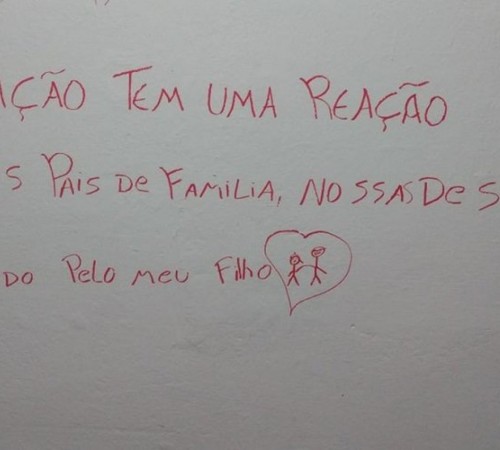 AÇÃO TEM UMA REAÇÃO
S PAIS DE FAMILIA, NOSSAS DES
DO PELO MEU FILHO